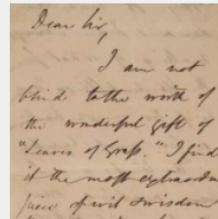 Dear Sir,
I am not
blind to the worth of
the wonderful gift of
"Leaves of Grass." I find
it the most extraordin
piece of wit & wisdom